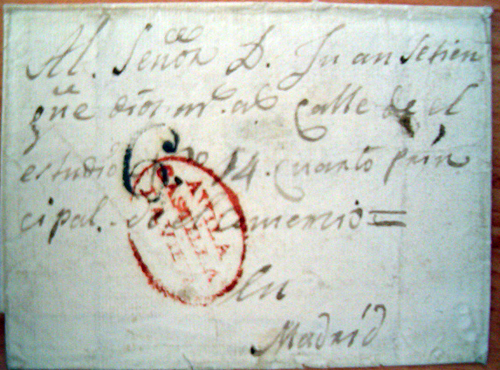 Al. Señor D. Juan Setien
que Dios m. as. Calle de el
estudio No 14. cuarto prin
cipal. el Comercio=
En
Madrid
6
AVILA
CASTILLA
LA VIE